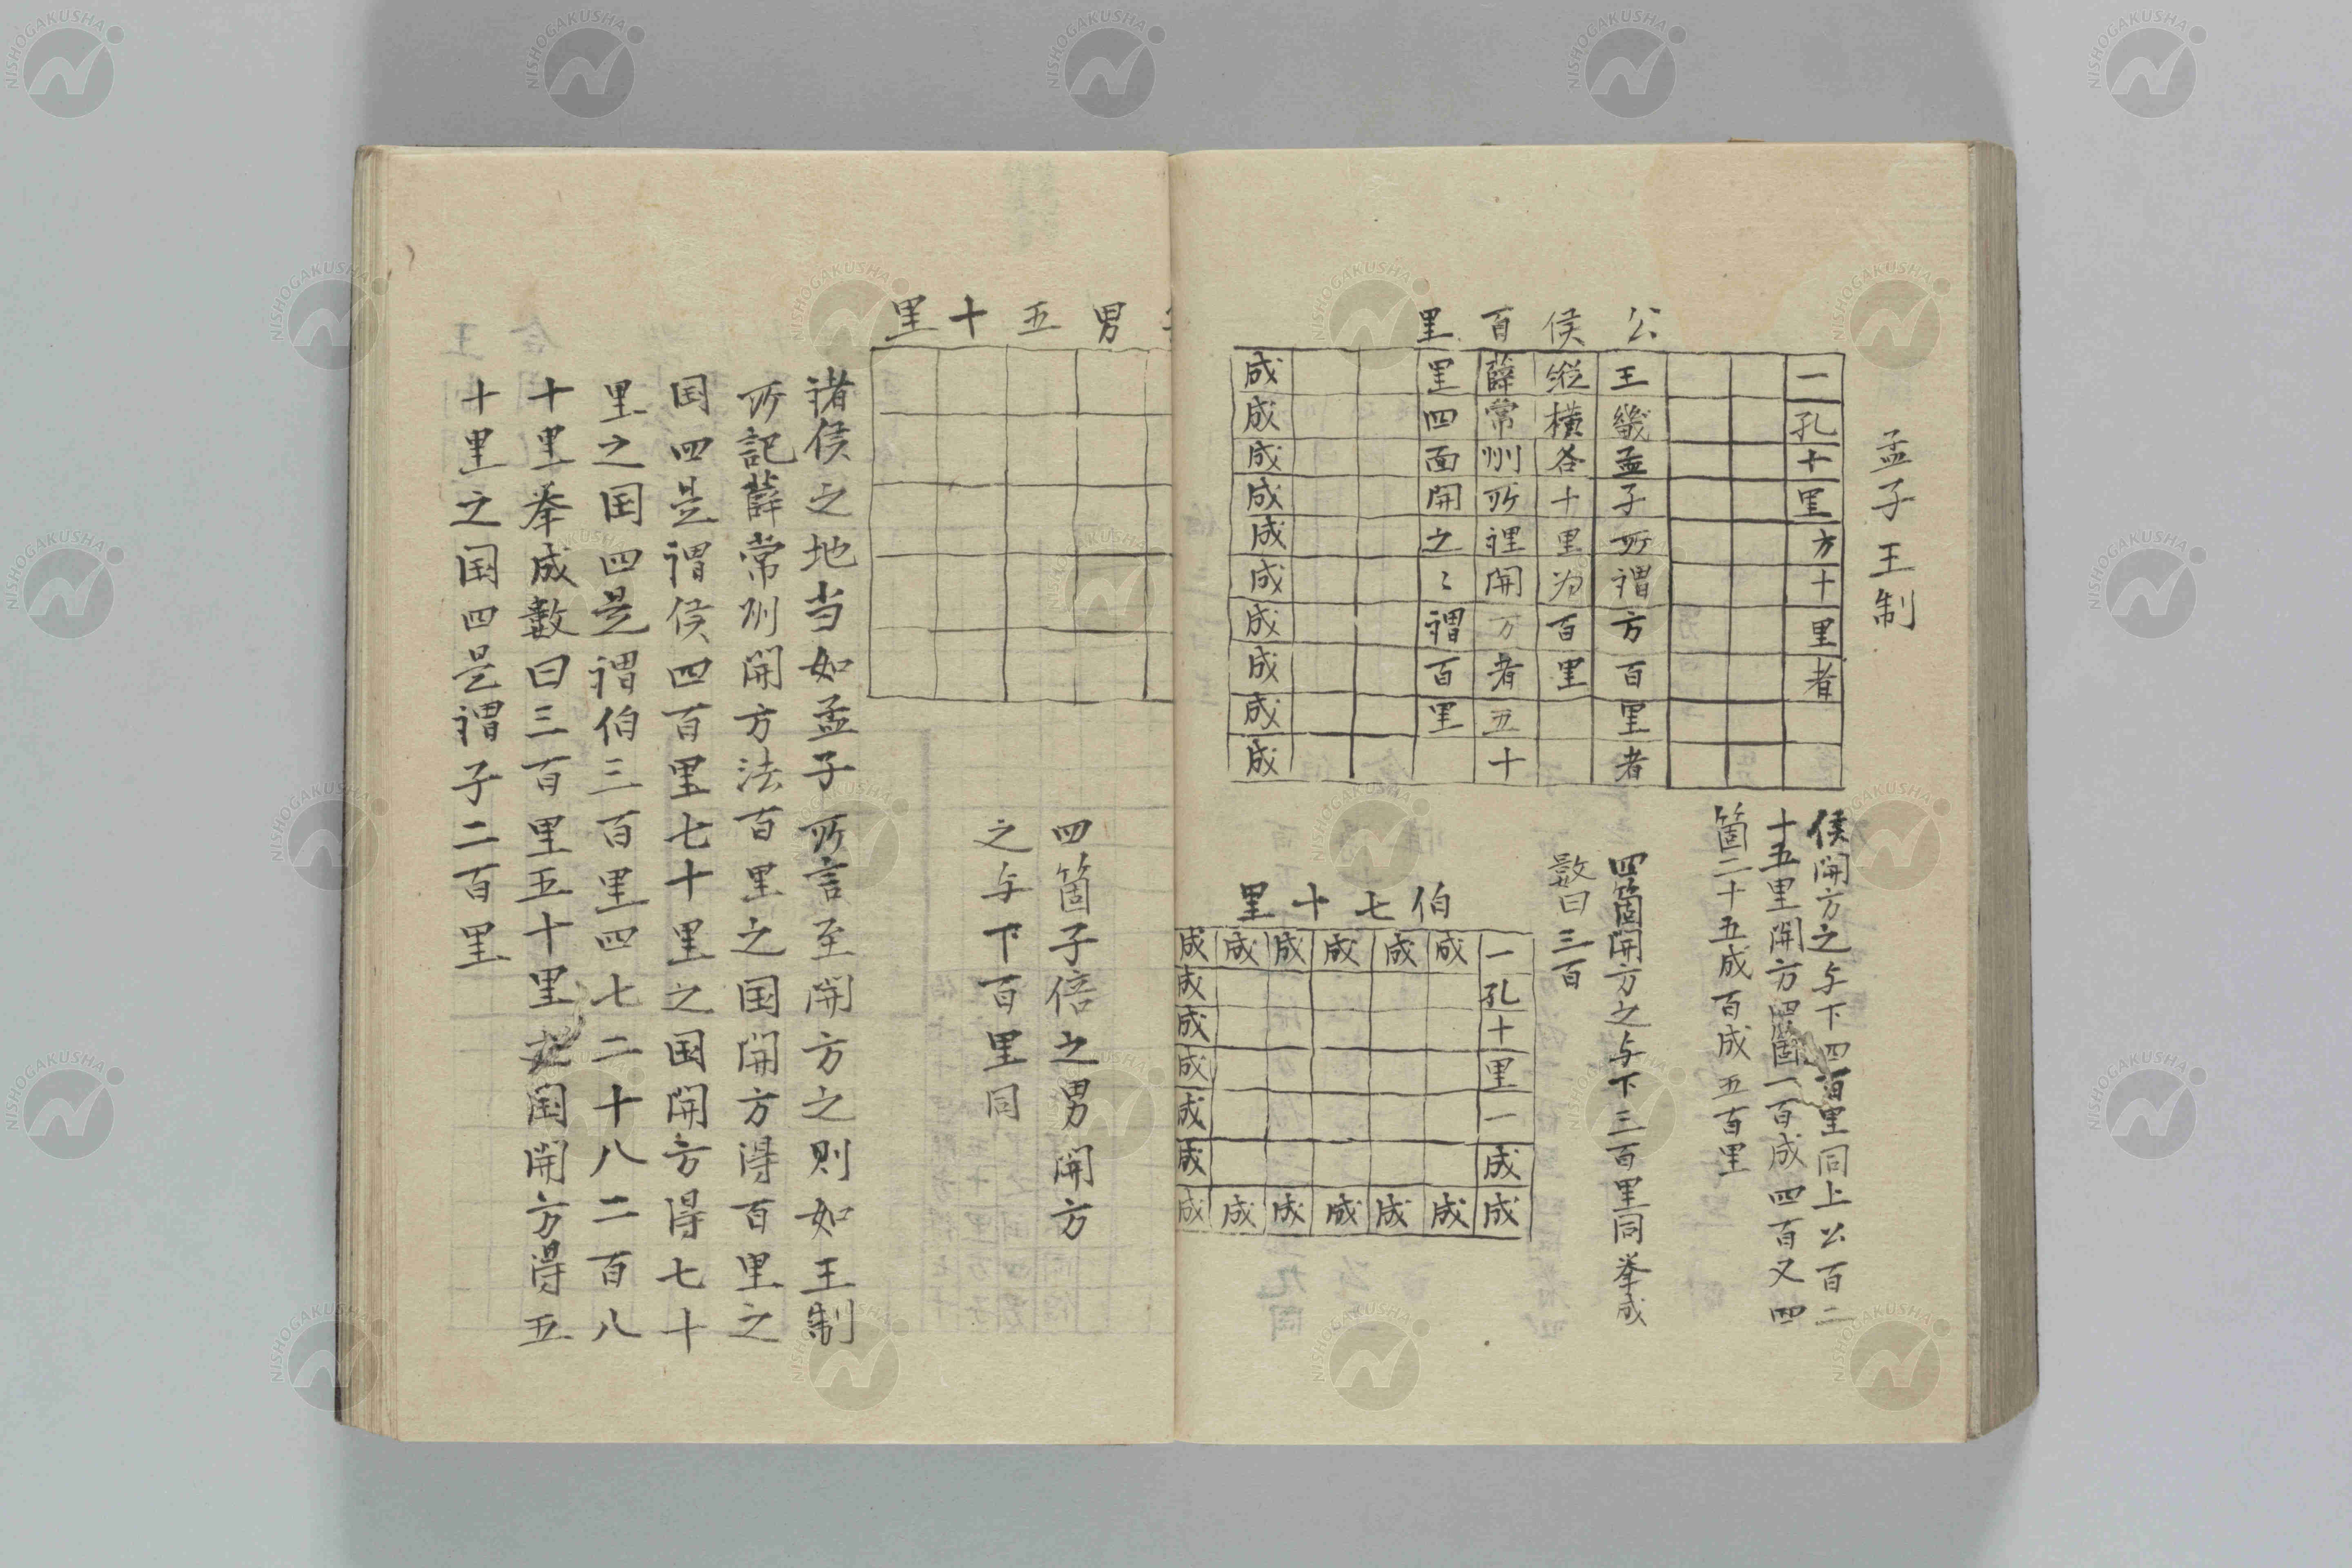 孟子王制
公侯百里
一孔十里方十里者
王畿孟子所謂方百里者
縦横各十里为百里
薛常州所裡開方者五十
里四面開之〻謂百里
成成成成成成成成成成
侯開方之与下四百里同上公百二
十五里開方四箇一百成四百又四
箇二十五成百成五百里
四箇開方之与下三百里同挙成
数曰三百
伯七十里
一孔十里一成成
成
成
成
成
成
成
成
成
成
成
成成成成成成成
男五十里
四箇子倍之男開方
之与下百里同
諸侯之地当如孟子所言至開方之則如王制
所記薛常州開方法百里之国開方得百里之
国四是謂侯四百里七十里之国開方得七十
里之国四是謂伯三百里四七二十八二百八
十里挙成數曰三百里五十里之国開方得五
十里之国四是謂子二百里
NISHOGAKUSHA